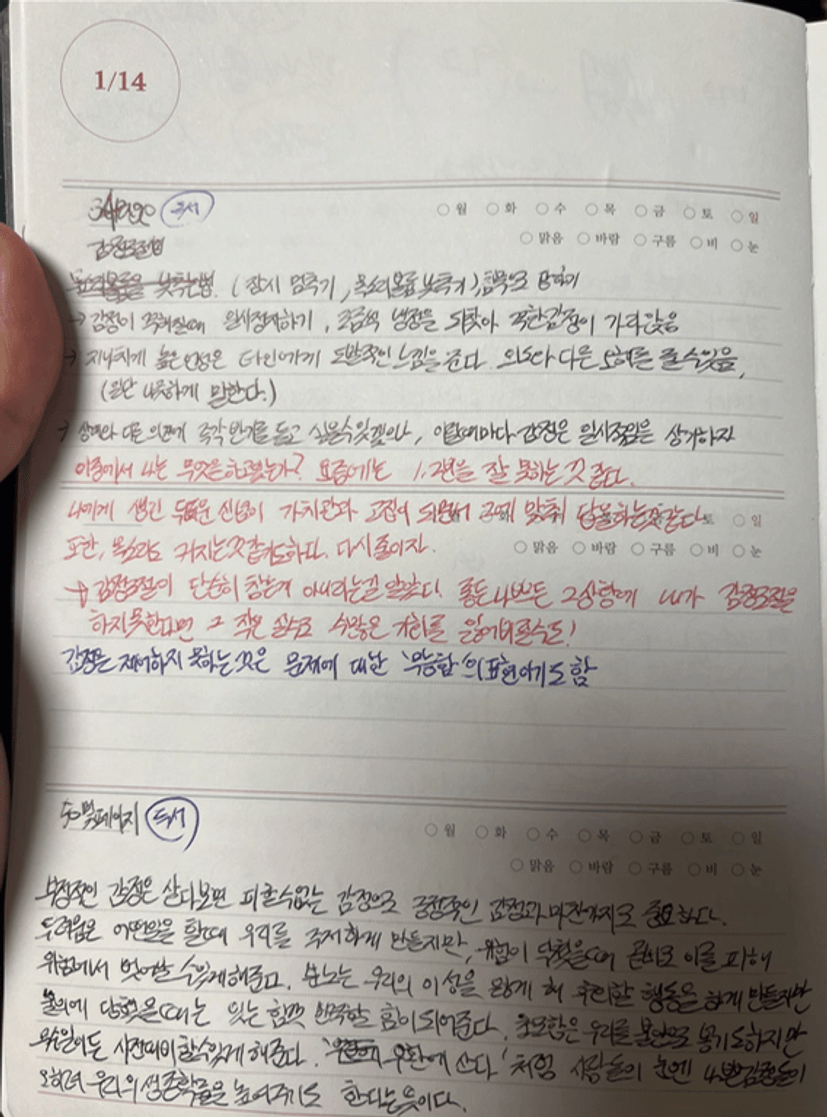 1/14
독서
월 화 수 목 금 토 일
감정조절법
맑음 바람 구름 비 눈
(잠시 멈추기, 목소리볼륨 낮추기, 침묵으로 답하기
→ 감정이 격해질때 일시정지하기, 조금씩 냉정을 되찾아 격한감정이 가라앉음
→ 지나치게 높은 언성은 타인에게 도발적인 느낌을 준다. 의도와 다른 오해를 줄수있음,
(일단 나긋하게 말한다.)
→ 상대와 다른 의견에 즉각 반기를 들고 싶을수있겠으나, 이럴때마다 감정은 일시적임을 상기하자
이중에서 나는 무엇을 하고있는가? 요즘에는 1, 2번을 잘 못하는것 같다.
나에게 생긴 두터운 신념이 가치관과 고집이 되면서 맞춰 답을하는것같다
토 일
또한, 목소리도 커지는것같기도하다. 다시 줄이자.
맑음 바람 구름 비 눈
→ 감정조절이 단순히 참는게 아니라는걸 알았다! 좋든 나쁘든 그상황에 내가 감정조절을
하지못한다면 그 작은 실수로 수많은 기회를 잃어버릴수도!
감정을 제어하지 못하는 것은 문제에 대한 '무능함'의 표현이기도 함
페이지 독서
월 화 수 목 금 토 일
맑음 바람 구름 비 눈
부정적인 감정은 살다보면 피할수없는 감정으로 긍정적인 감정과 마찬가지로 중요하다.
두려움은 어떤일을 할때 우리를 주저하게 만들지만, 위험이 닥쳤을때 곧바로 이를 피해
위험에서 벗어날 수있게해준다. 분노는 우리의 이성을 잃게 해 후회할 행동을 하게 만들지만
불의에 당했을때는 있는 힘껏 반격할 힘이되어준다. 초조함은 우리를 불안으로 몰기도하지만
무슨일이든 사전대비할수있게 해준다. 우환에 산다' 처럼 사람들의 눈엔 나쁜감정들이
오히려 우리의 생존확률을 높여주기도 한다는뜻이다.